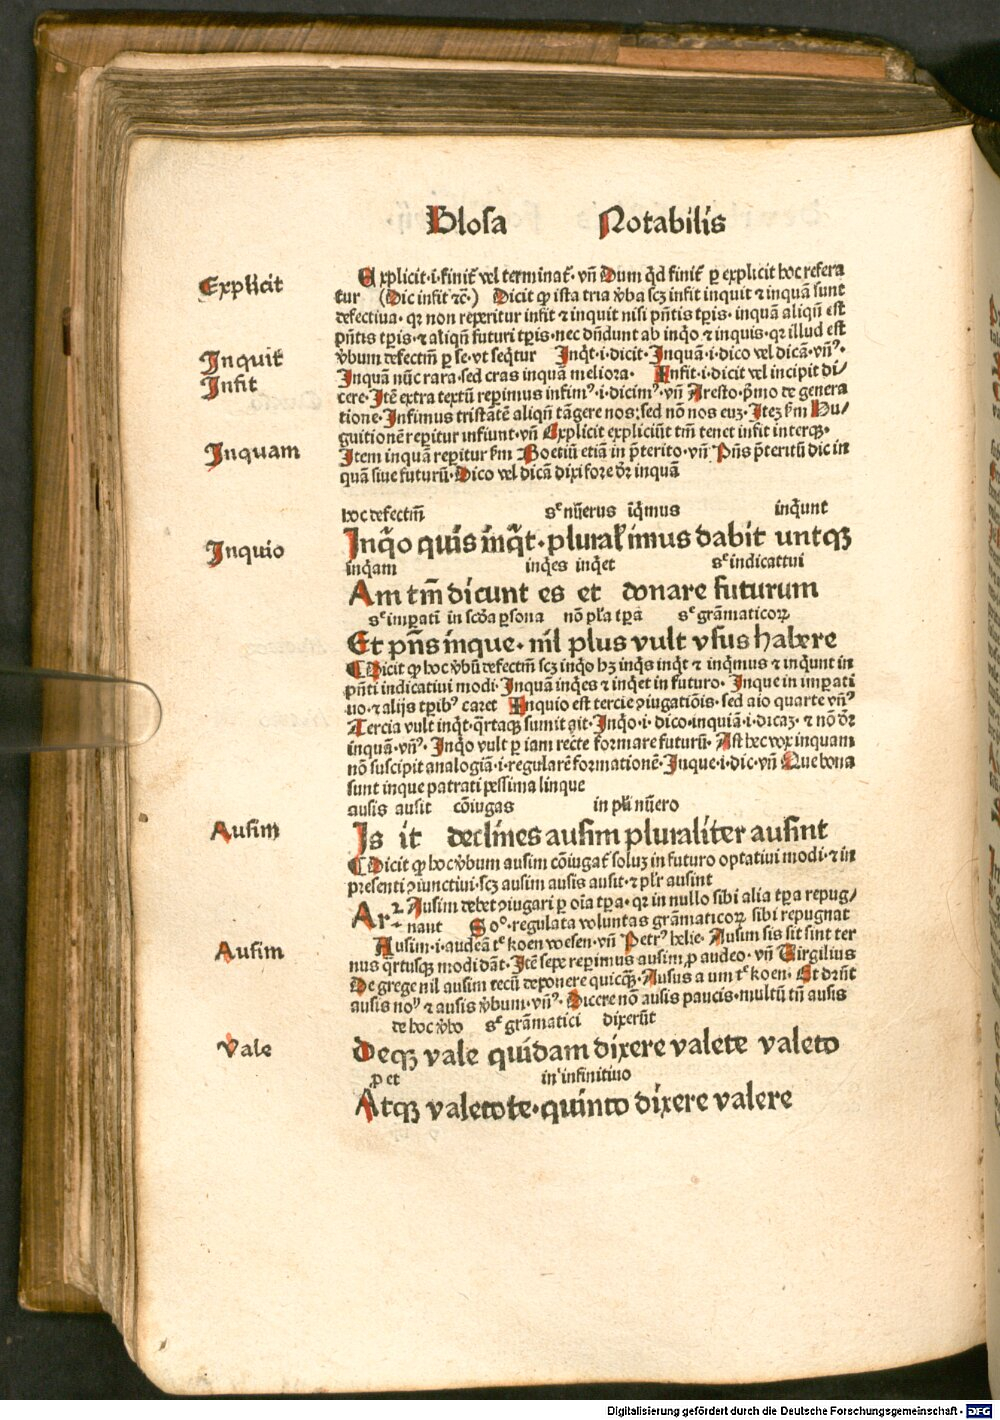 Glosa Notabilis
Explicit
Explicit·i·finit̄ vel terminat̄· vn̄ Dum q̄d finit̄ ꝑ explicit hoc refera
tur (Dic infit ⁊c̄·) Dicit ꝙ ista tria v̄ba scꝫ infit inquit ⁊ inquā sunt
defectiua· qꝛ non reperitur infit ⁊ inquit nisi p̄ntis tp̄is· inquā aliqn̄ est
p̄ntis tp̄is· ⁊ aliqn̄ futuri tp̄is· nec dn̄dunt ab inq̄o ⁊ inquis· qꝛ illud est
Inquit
v̄bum defectīm ꝑ se· vt seq̄tur Inq̄t·i·dicit· Inquā·i·dico vel dicā· vn̄ꝰ·
Infit
Inquā nūc rara· sed cras inquā meliora· Infit·i·dicit vel incipit di/
cere· Itē extra textū reperimus infimꝰ·i·dicimꝰ· vn̄ Aresto· p̄mo de genera
tione· Infimus tristātē aliqn̄ tāgere nos; sed nō nos euꝫ· Iteꝫ s̄m Hu/
guitionē reperitur infiunt· vn̄ Explicit expliciūt tm̄ tenet infit interqꝫ·
Inquam
Item inquā reperitur s̄m Boetiū etiā in p̄terito· vn̄ Pn̄s p̄teritū dic in
quā siue futurū· Dico vel dicā dixi fore dr̄ inquā
hoc defectīm sꝫ nūerus iq̄mus inq̄unt
Inquio
Inq̄o quis inq̄t· plural̄ imus dabit untqꝫ
inq̄am inq̄es inq̄et sꝫ indicatiui
Am tm̄ dicunt es et donare futurum
sꝫ imꝑatī in scd̄a ꝑsona nō pl̄a tp̄a sꝫ grāmaticoꝝ
Et pn̄s inque· nil plus vult vsus habere
¶ Dicit ꝙ hoc v̄bū defectīm scꝫ inq̄o hꝫ inq̄s inq̄t ⁊ inq̄mus ⁊ inq̄unt in
p̄nti indicatiui modi· Inquā inq̄es ⁊ inq̄et in futuro· Inque in imꝑati
uo· ⁊ alijs tp̄ibꝰ caret Inquio est tercie ꝯiugatiōis· sed aio quarte vn̄ꝰ
Tercia vult inq̄t· q̄rtaqꝫ sumit ait· Inq̄o·i·dico· inquiā·i·dicaꝫ· ⁊ nō dr̄
inquā· vn̄ꝰ· Inq̄o vult ꝑ iam recte formare futurū· Ast hec vox inquam
nō suscipit analogiā·i·regularē formationē· Inque·i·dic· vn̄ Que bona
sunt inque patrati pessima linque
ausis ausit cōiugas in pl̄i nūero
Ausim
Is it declines ausim pluraliter ausint
¶ Dicit ꝙ hoc v̄bum ausim cōiugat̄ soluꝫ in futuro optatiui modi· ⁊ in
presenti ꝯiunctiui· scꝫ ausim ausis ausit· ⁊ pl̄r ausint
Ar· Ausim debet ꝯiugari ꝑ oīa tp̄a· qꝛ in nullo sibi alia tp̄a repug/
naut Soº· regulata voluntas grāmaticoꝝ sibi repugnat
Ausim
Ausim·i·audeā tꝫ koen wesen· vn̄ Petrꝰ helie· Ausum sis sit sint ter
nus q̄rtusqꝫ modi dāt· Itē sepe reperimus ausim ꝓ audeo· vn̄ Virgilius
De grege nil ausim tecū deponere quicqꝫ· Ausus a um tꝫ koen· Et drn̄t
ausis noꝰ ⁊ ausis v̄bum· vn̄ꝰ· Dicere nō ausis paucis· multū tn̄ ausis
de hoc v̄bo sꝫ grāmatici dixerūt
Vale
Deqꝫ vale quidam dixere valete valeto
ꝓ et in infinitiuo
Atqꝫ valetote· quinto dixere valere
Digitalisierung gefördert durch die Deutsche Forschungsgemeinschaft - DFG